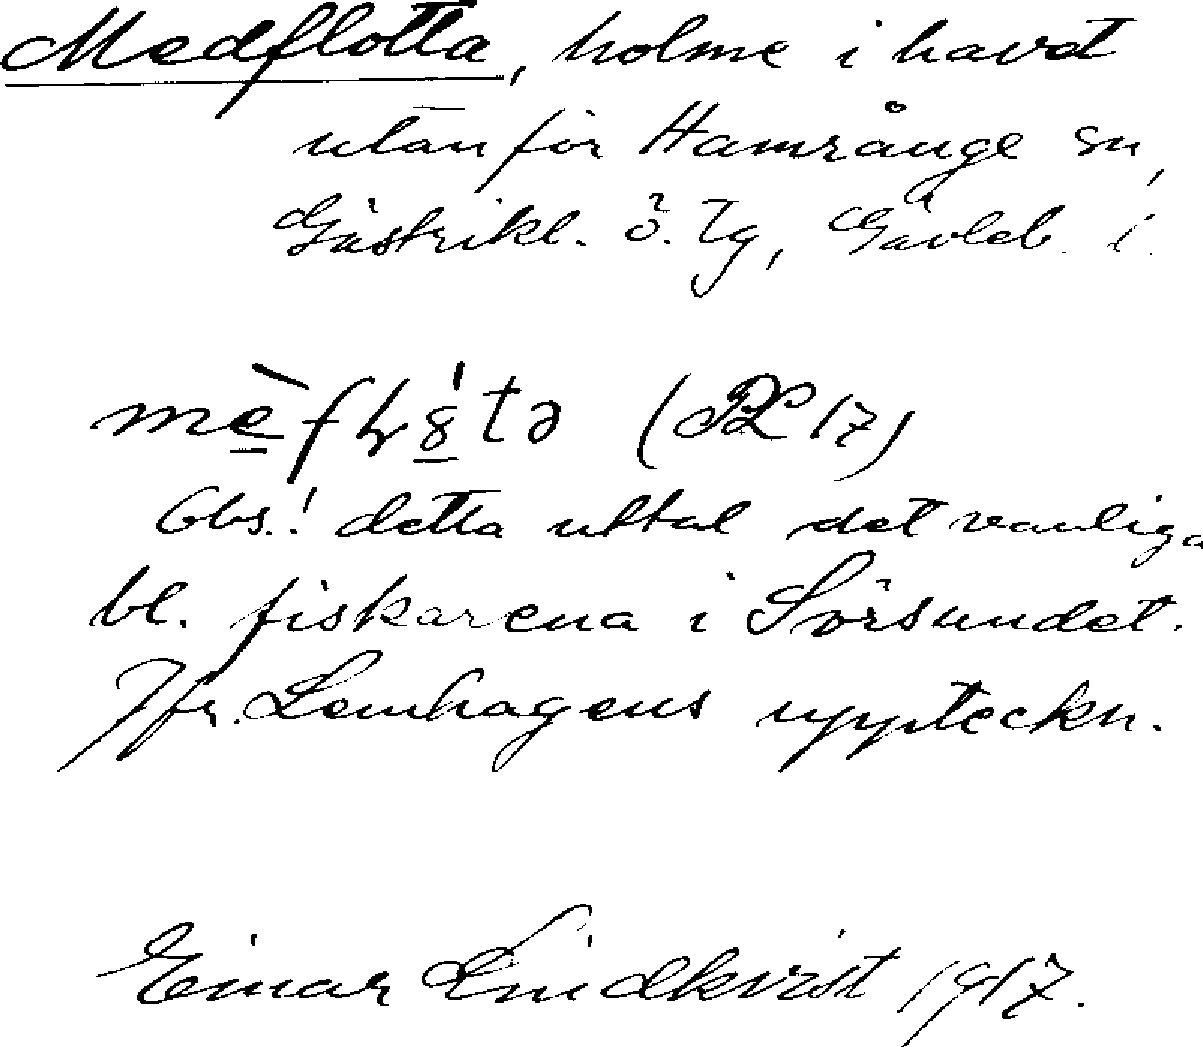 Medflotta, holme i havet
utanför Hamrånge sn,
Gästrikl. ö. Tg, Gävleb. l.
(PL 17)
Obs.! detta uttal det vanliga
bl. fiskarena i Sörsundet.
Jfr. Lenhagens uppteckn.
Einar Lindkvist 1917.